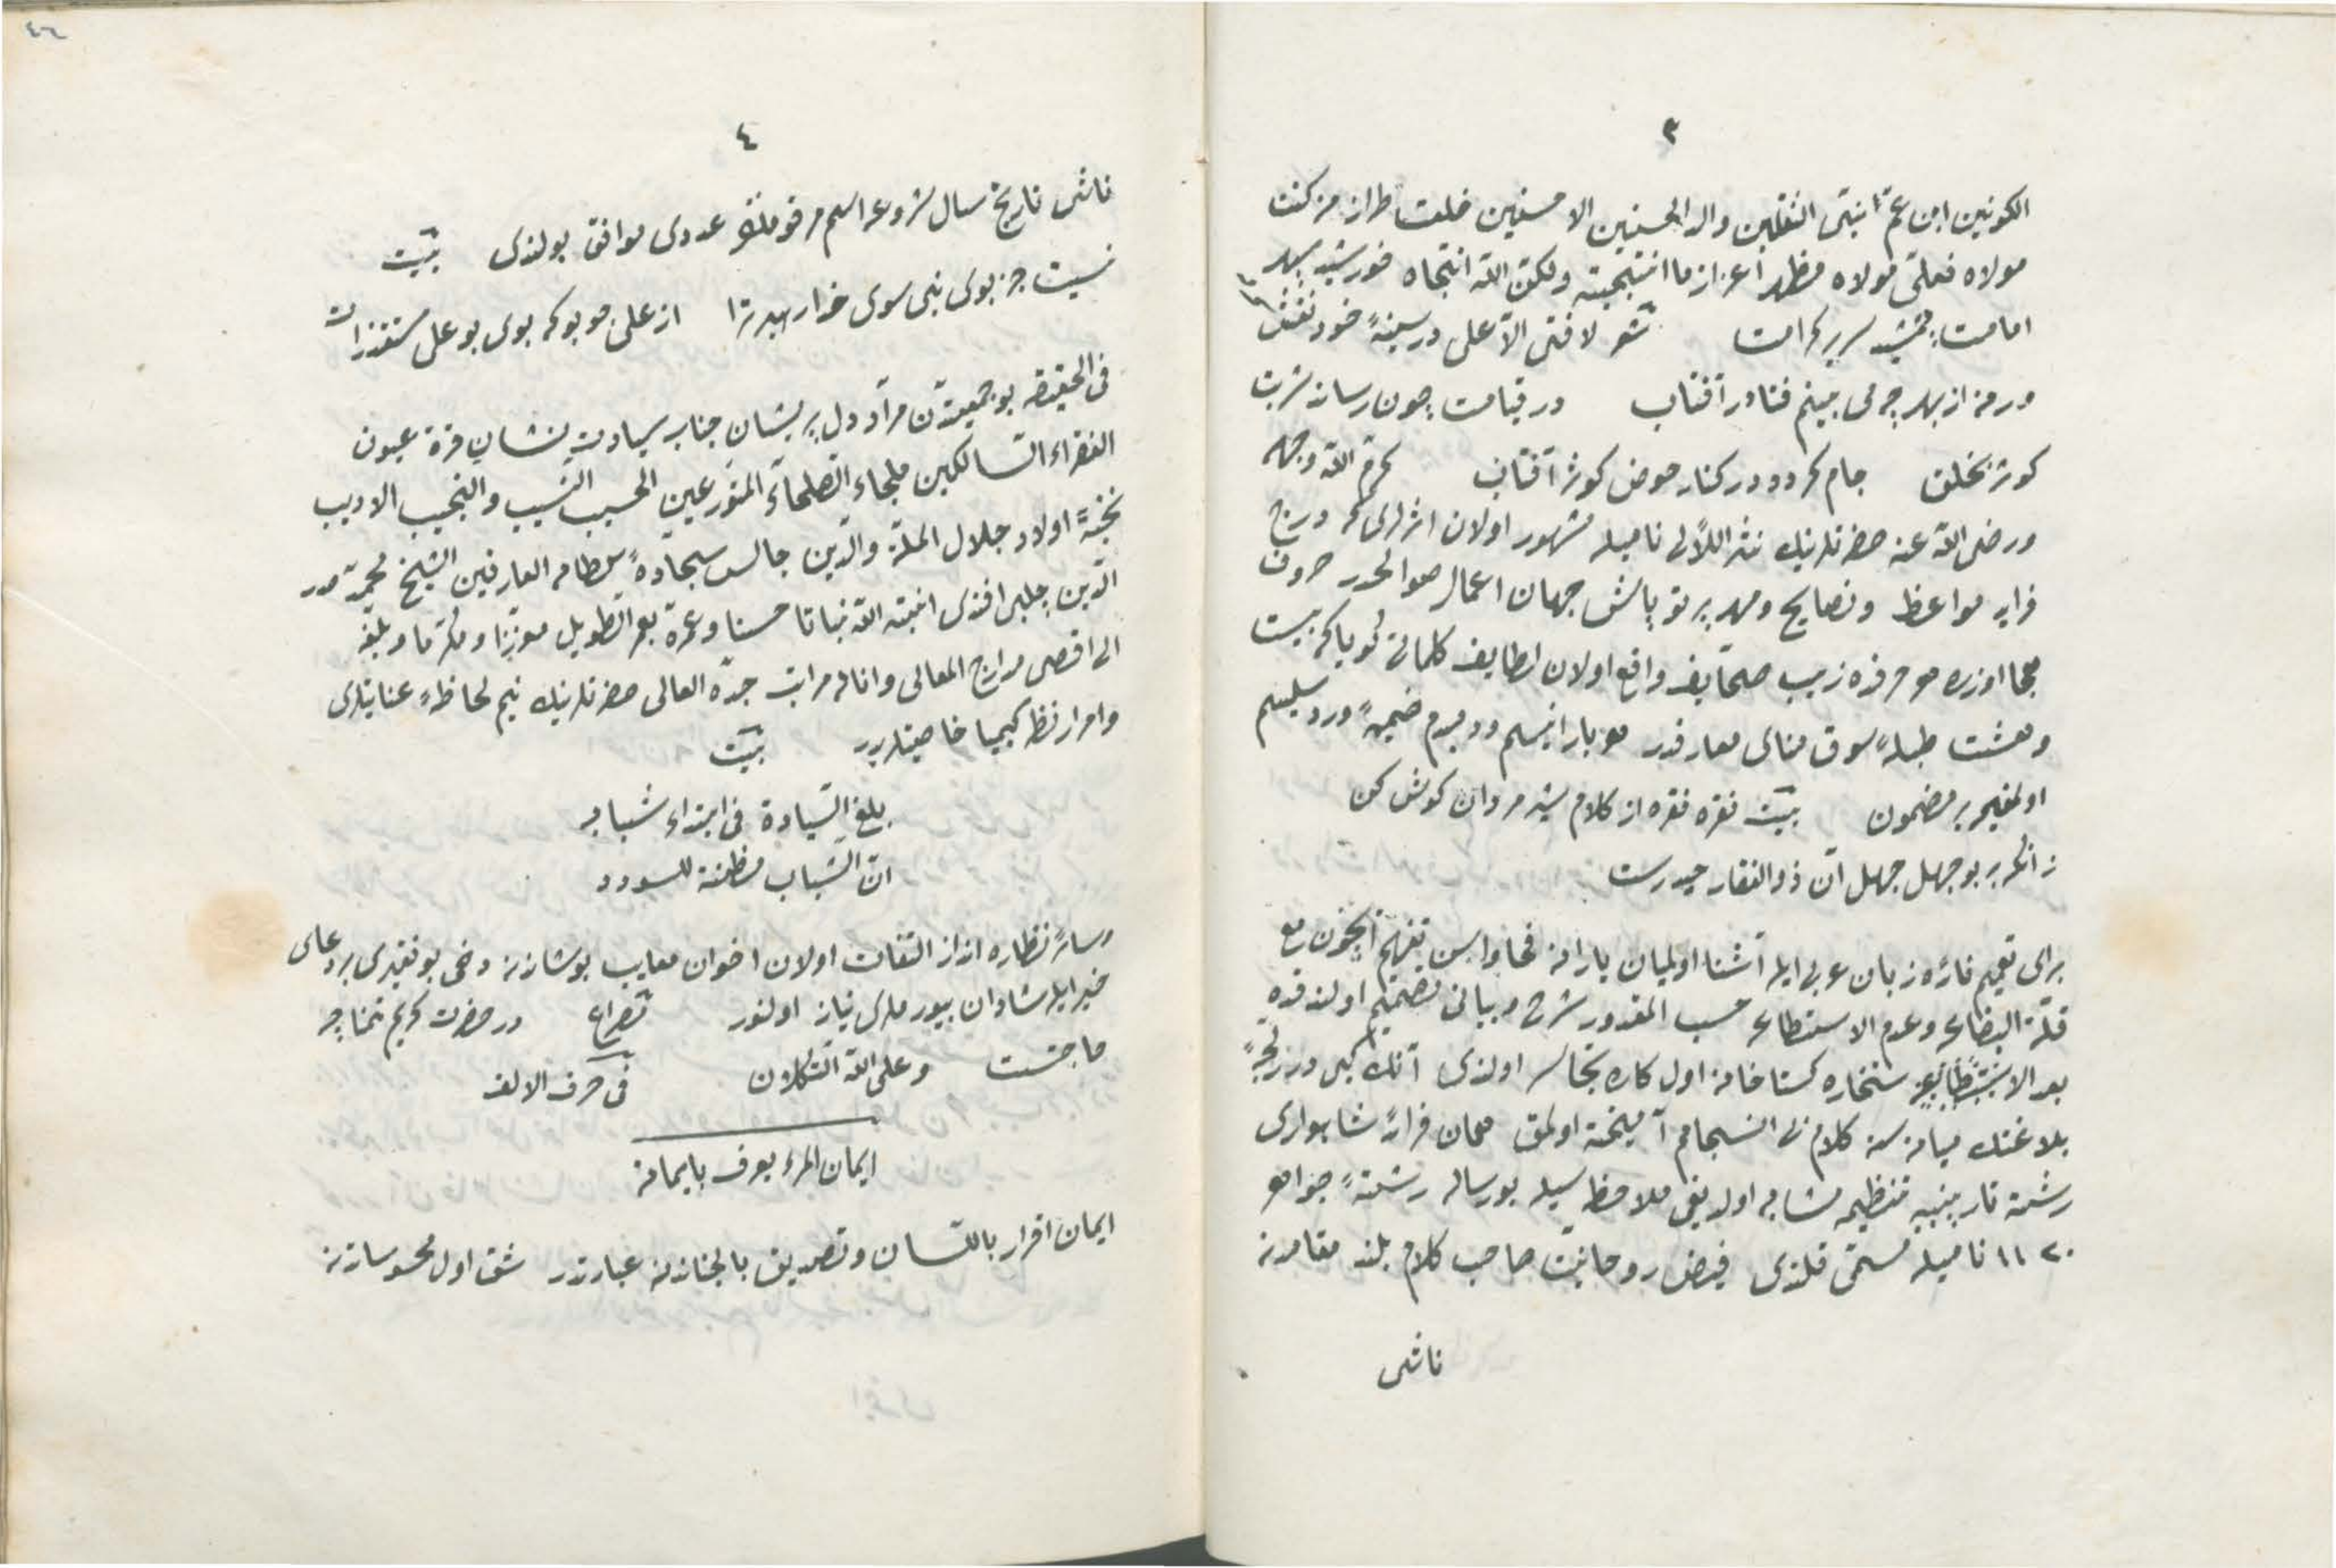 ٣
الكونين ابن عم نبى الثقلين والد الحسنين الاحسنين خلعت طراز من كنت
مولاه فعلى مولاه مظهر اعزاز ما انتجيته ولكن الله انتجاه خورشيد سپهر
امامت جمشيد سرير كرامت شعر لا فتى الا على در سينهٔ خود نقش
ور نه از بهر چه مى بينم فتاده آفتاب در قيامت چون رساند شربت
كوثر بخلق جام كردد در كنار حوض كوثر آفتاب كرم الله وجهه
ورضى الله عنه حضرتلرينك نثر اللآلى ناميله مشهور اولان اثرلرى كه درج
فرايد مواعظ ونصايح ومهر پرتو پاش جهان اعمال صوالحدر حروف
هجا اوزره زيب صحايف واقع اولان لطايف كلماتى كويا كه بيت
وهشت طبلهٔ سوق معارفدر هو بار انيسم ودمبدم ضميمهٔ ورد سليسم
اولمغله بر مضمون بيت نقره نقره از كلام شير مردان كوش كن
زانكه بر بوجهل جهل آن ذو الفقار حيدرست
براى تعميم فائده زبان عربى ايله آشنا اولميان يارانه فحاواسن تفهيم ايچون مع
قلة البضاعه وعدم الاستطاعه حسب المقدور شرح وبيانى تصميم اولندقده
بعد الاستخاره كستاخانه اول كاره تجاسر اولندى آنك كبى درر
بلاغتك ميانه سنه كلام بى انسجامم آميخته اولمق همان فرائد شاهوارى
رشته تار پنبه يه تنظيمه مشابه اولديغى ملاحظه سيله بو رساله رشتهٔ جواهر
١١٢٠ ناميله مسمى قلندى فيض روحانيت صاحب كلام بلند مقامدن
ناشى
٤٦
٤
ناشى تاريخ سال شروعه اسم مرقومك عددى موافق بولندى بيت
نيست جز بوى نبى سوى خدا رهبر ترا از على جو بو كه بوى بو على مستقذرات
فى الحقيقه بو جمعيتدن مراد دل پريشان جناب سيادت نشان قرة عيون
الفقراء السالكين ملجاء الصلحاء المتورعين الحسيب النسيب والنجيب الاديب
نخبهٔ اولاد جلال الملة والدين جالس سجادهٔ سلطان العارفين الشيخ محمد صدر
الدين چلبى افندى انبته الله نباتا حسنا وعمره بعمر الطويل معززا ومكرما وبلغه
الى اقصى مدارج المعالى وانا له مراتب جده العالى حضرتلرينك نيم لحاظهٔ عنايتلرى
وامرار نظر كيميا خاصيتلريدر بيت
بلغ السيادة فى ابتداء شبابه
ان الشباب مظنة للسودد
وسائر نظاره انداز التفات اولان اخوان معايب پوشاندن دخى بو فقيرى بر دعاى
خير ايله شادان بيورملرى نياز اولنور مصراع در حضرت كريم تمنا چه
حاجتست وعلى الله التكلان فى حرف الالف
ايمان المرء يعرف بايمانه
ايمان اقرار باللسان وتصديق بالجناندن عبارتدر شق اول محسوساتدن